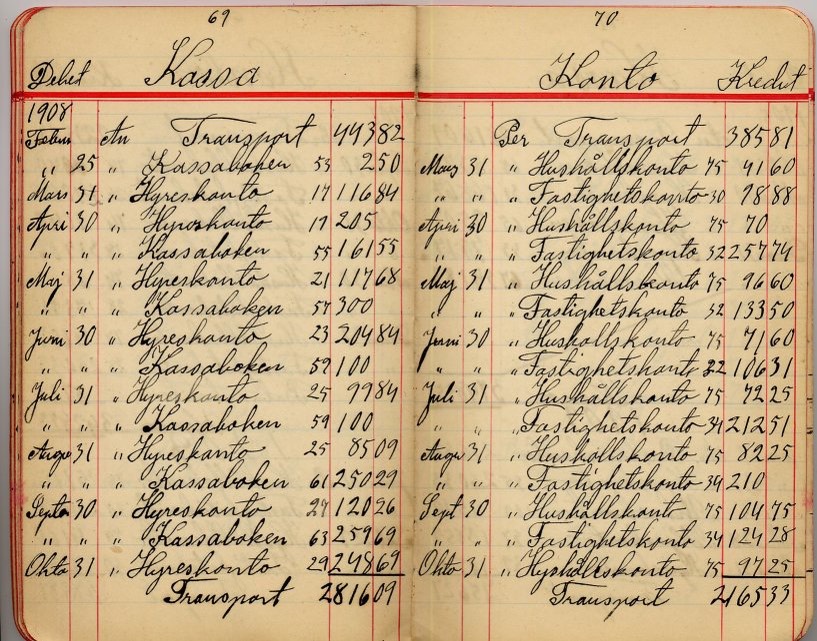 69
Debet Kassa
1908
Febru An Transport 443 82
" 25 " Kassaboken 53 2 50
Mars 31 " Hyreskonto 17 116 84
April 30 " Hyreskonto 19 205
" " " Kassaboken 55 161 55
Maj 31 " Hyreskonto 21 117 68
" " " Kassaboken 57 300
Juni 30 " Hyreskonto 23 204 84
" " " Kassaboken 59 100
Juli 31 " Hyreskonto 25 99 84
" " " Kassaboken 59 100
Augu 31 " Hyreskonto 25 85 09
" " " Kassaboken 61 250 29
Septe 30 " Hyreskonto 27 120 26
" " " Kassaboken 63 259 69
Okto 31 " Hyreskonto 29 248 69
Transport 2816 09
70
Konto Kredit
Per Transport 385 81
Mars 31 " Hushållskonto 75 41 60
" " " Fastighetskonto 30 98 88
April 30 " Hushållskonto 75 70
" " " Fastighetskonto 32 257 74
Maj 31 " Hushållskonto 75 96 60
" " " Fastighetskonto 32 133 50
Juni 30 " Hushållskonto 75 71 60
" " " Fastighetskonto 32 106 31
Juli 31 " Hushållskonto 75 72 25
" " " Fastighetskonto 34 212 51
Augu 31 " Hushållskonto 75 82 25
" " " Fastighetskonto 34 210
Sept 30 " Hushållskonto 75 104 75
" " " Fastighetskonto 34 124 28
Okto 31 " Hushållskonto 75 97 25
Transport 2165 33